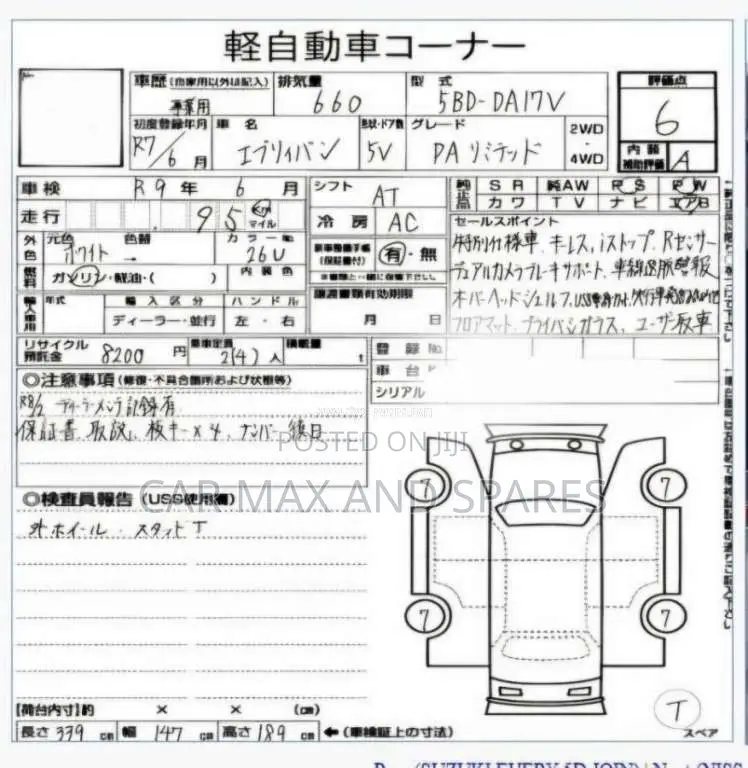 軽自動車コーナー
車歴 (自家用以外は記入) 事業用
排気量 660
型式 5BD-DA17V
評価点 6
初度登録年月 R7/6月
車名 エブリィバン
形状・ドア数 5V
グレード PAリミテッド
2WD・4WD
内装補助評価 A
車検 R9年 6月
シフト AT
純正品 SR 純AW PS PW
カワ TV ナビ エアB
走行 95 Km マイル
冷房 AC
セールスポイント
特別仕様車、キーレス、iストップ、Rセンサー
デュアルカメラブレーキサポート、車線逸脱警報
オーバーヘッドシェルフ、USB
フロアマット、プライバシーガラス、ユーザー販車
外色 元色 ホワイト 色替 →
カラーNo. 26U
新車整備手帳(保証書付) 有・無
燃料 ガソリン・軽油・( )
内装色
輸入車用 年式 輸入区分 ハンドル
ディーラー・並行 左・右
譲渡書類有効期限
月 日
リサイクル預託金 8200円
乗車定員 2(4)人
積載量 t
登録No.
車台
シリアル
◎注意事項 (修復・不具合箇所および状態等)
R8/2 ディーラーメンテ記録有
保証書、取説、枚キー×4、ナンバー後日
WWW.CAR FROM JAPAN
POSTED ON JIJI
CAR MAX AND SPARES
◎検査員報告 (USS使用欄)
外ホイール・スタッドT
7
7
7
7
T
スペア
【荷台内寸】約 × × (cm)
長さ 339 cm 幅 147 cm 高さ 189 cm ←(車検証上の寸法)